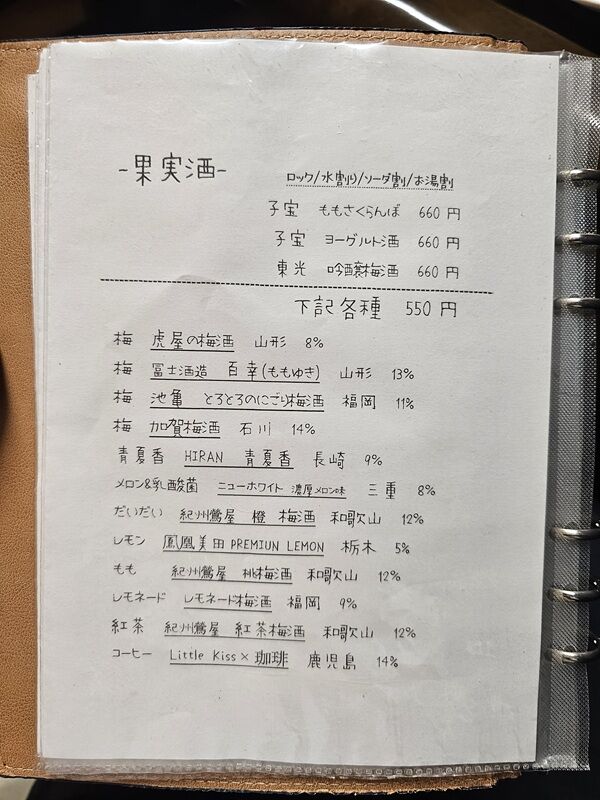 -果実酒-
ロック/水割り/ソーダ割/お湯割
子宝 ももさくらんぼ 660 円
子宝 ヨーグルト酒 660 円
東光 吟醸梅酒 660 円
下記各種 550 円
梅 虎屋の梅酒 山形 8%
梅 冨士酒造 百幸(ももゆき) 山形 13%
梅 池亀 とろとろのにごり梅酒 福岡 11%
梅 加賀梅酒 石川 14%
青夏香 HIRAN 青夏香 長崎 9%
メロン&乳酸菌 ニューホワイト 濃厚メロン味 三重 8%
だいだい 紀州鶯屋 橙 梅酒 和歌山 12%
レモン 鳳凰美田 PREMIUN LEMON 栃木 5%
もも 紀州鶯屋 桃梅酒 和歌山 12%
レモネード レモネード梅酒 福岡 9%
紅茶 紀州鶯屋 紅茶梅酒 和歌山 12%
コーヒー Little Kiss×珈琲 鹿児島 14%